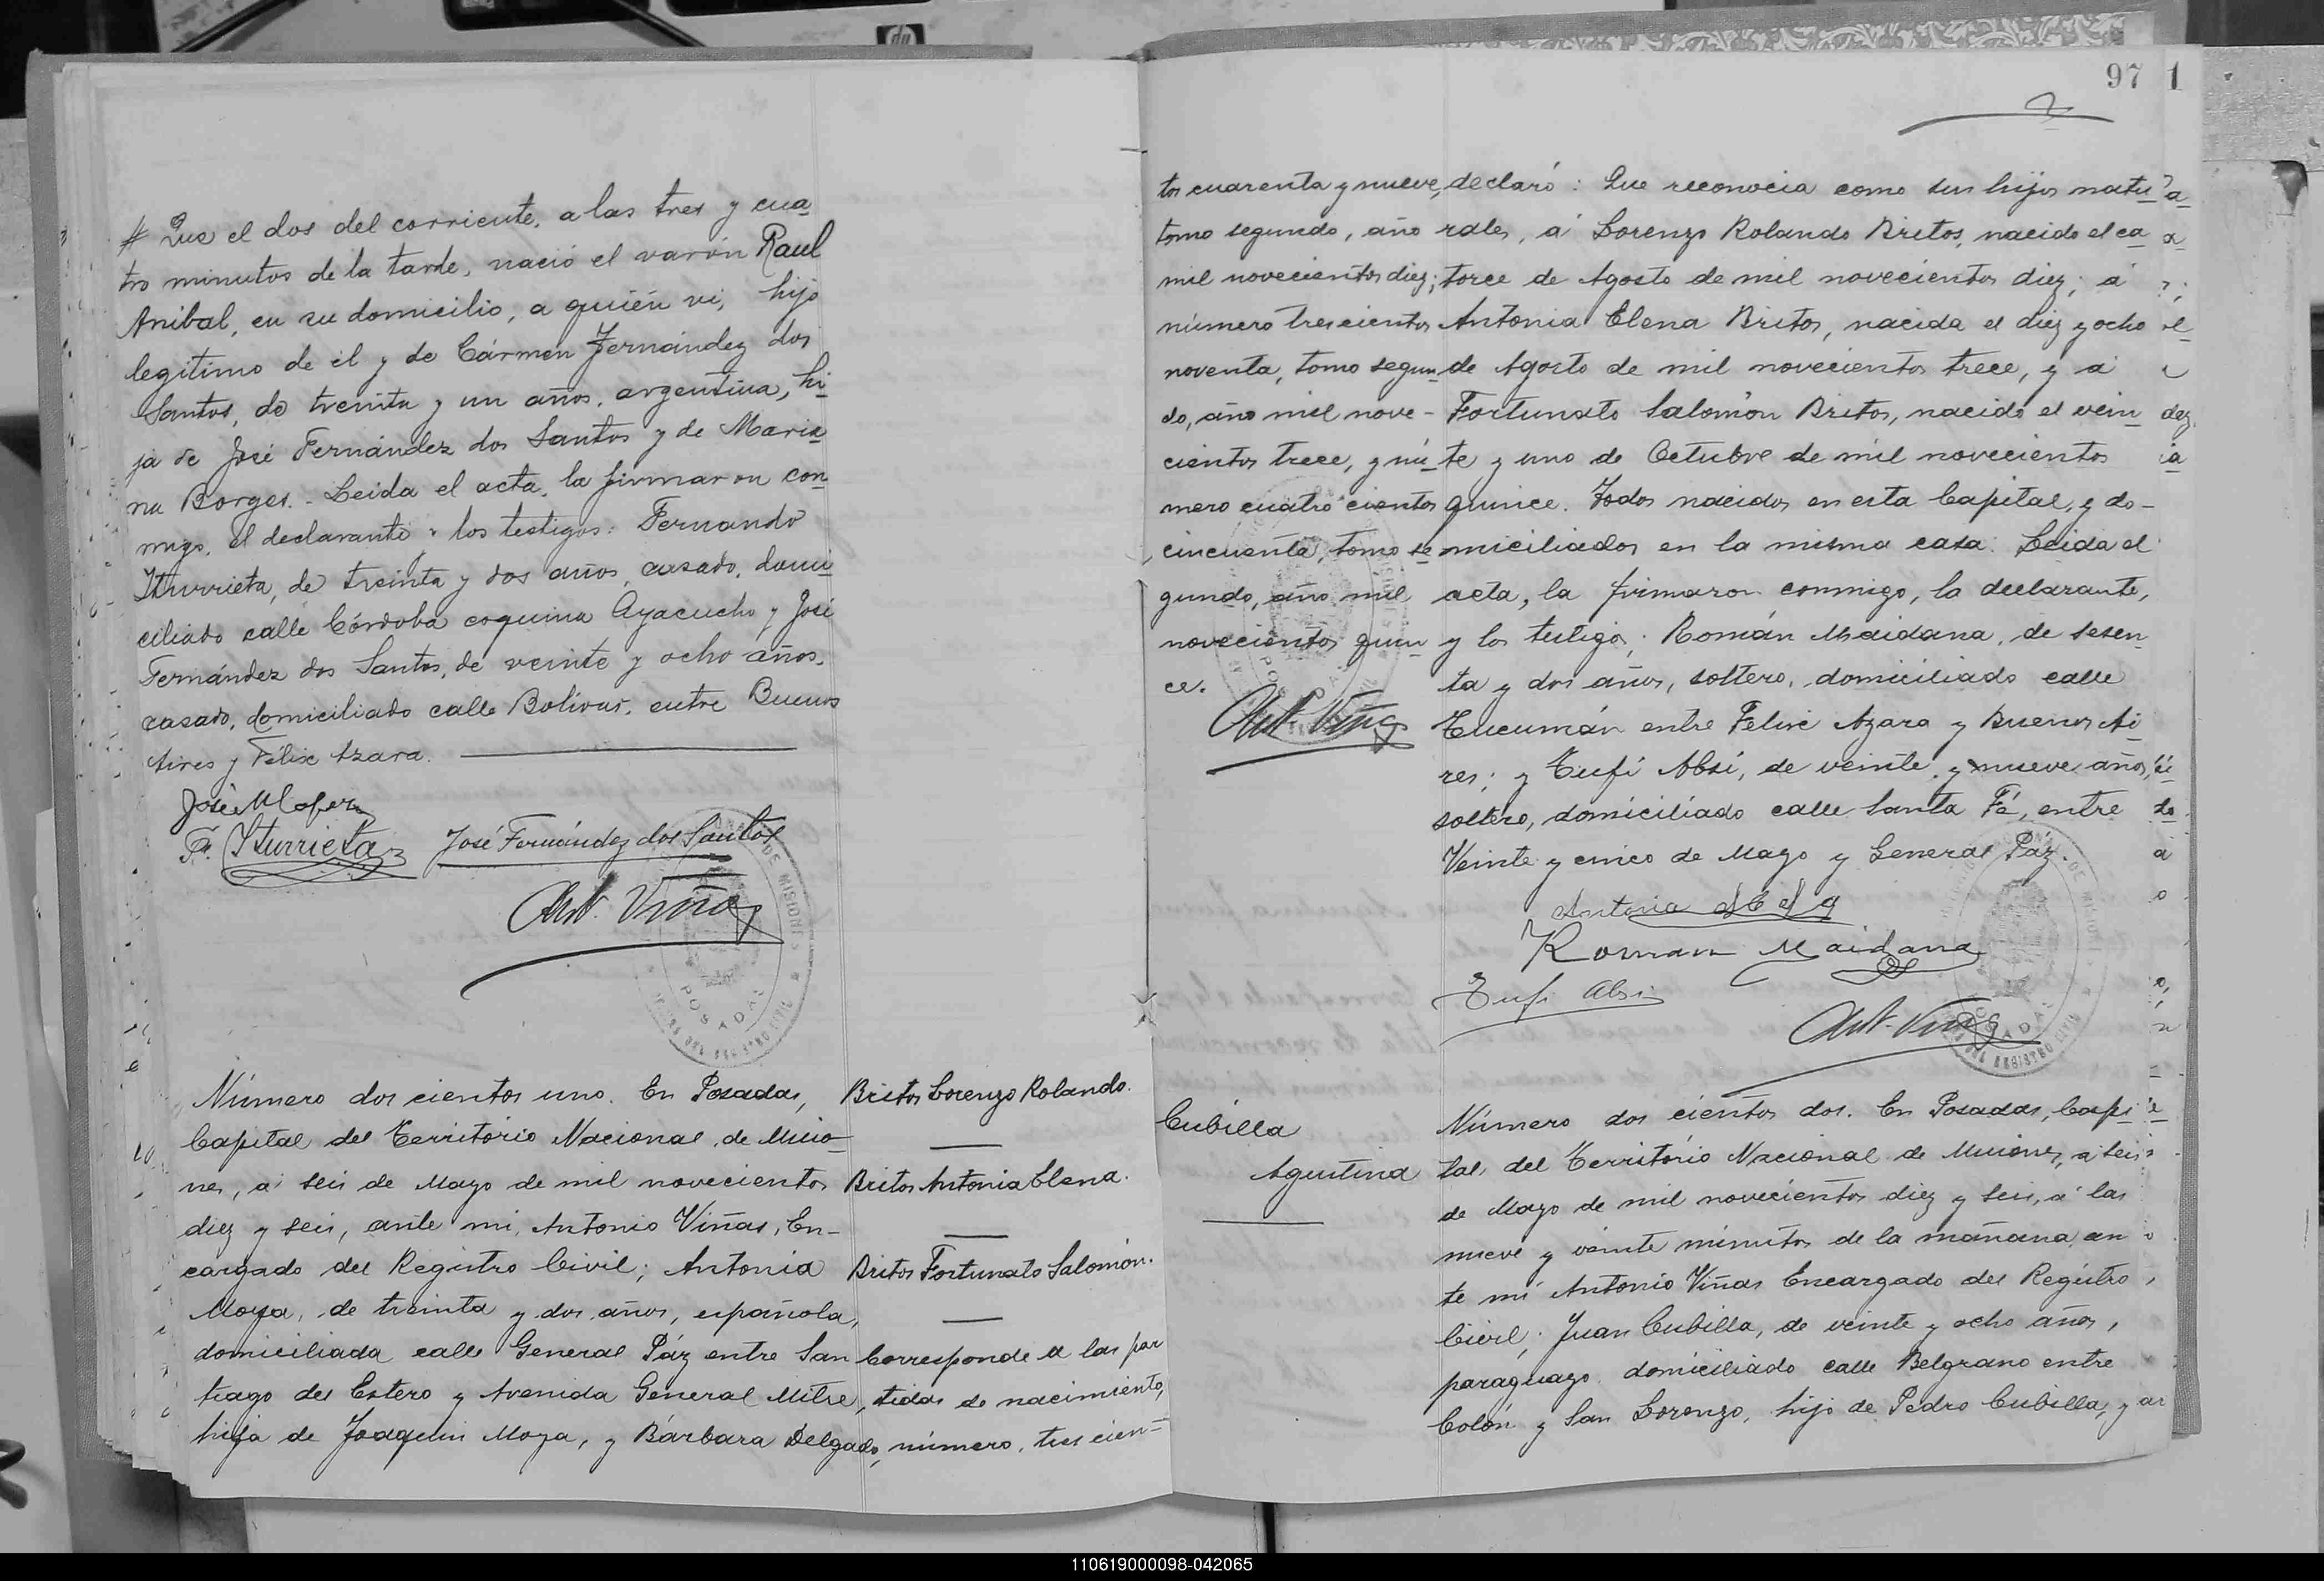 # Que el dos del corriente, a las tres y cua
tro minutos de la tarde, nació el varón Raul
Anibal, en su domicilio, a quién vi, hijo
legitimo de él y de Cármen Fernández dos
Santos, de treinta y un años, argentina, hi
ja de José Fernández dos Santos y de Maria
na Borges. - Leida el acta, la firmaron con
migo, el declarante y los testigos: Fernando
Iturrieta, de treinta y dos años, casado, domi
ciliado calle Córdoba esquina Ayacucho y José
Fernández dos Santos, de veinte y ocho años,
casado, domiciliado calle Bolívar, entre Buenos
Aires y Félix Azara.
José M
F. Iturrieta José Fernández dos Santos
Ant. Viñas
POSADAS
Número dos cientos uno. En Posadas,
Capital del Territorio Nacional de Misio
nes, á seis de Mayo de mil novecientos
diez y seis, ante mi, Antonio Viñas, En-
cargado del Registro Civil; Antonia
Moya, de treinta y dos años, española,
domiciliada calle General Páz entre San
tiago del Estero y Avenida General Mitre,
hija de Joaquin Moya, y Bárbara Delgado,
Britos Lorenzo Rolando.
Britos Antonia Elena.
Britos Fortunato Salomón.
Corresponde a las par
tidas de nacimiento,
número, tres cien-
97 1
tos cuarenta y nueve,
tomo segundo, año
mil novecientos diez;
número trescientos
noventa, tomo segun
do, año mil nove-
cientos trece, y nú
mero cuatro cientos
cincuenta, tomo se
gundo, año mil
novecientos quin
ce.
Ant. Viñas
declaró: Que reconocia como sus hijos natu
rales, á Lorenzo Rolando Britos, nacido el ca
torce de Agosto de mil novecientos diez; á
Antonia Elena Britos, nacida el diez y ocho
de Agosto de mil novecientos trece, y a
Fortunato Salomón Britos, nacido el vein
te y uno de Octubre de mil novecientos
quince. Todos nacidos en esta Capital, y do-
miciliados en la misma casa. Leida el
acta, la firmaron conmigo, la declarante,
y los testigos; Román Maidana, de sesen
ta y dos años, soltero, domiciliado calle
Tucumán entre Felix Azara y Buenos Ai
res; y Tufi Absi, de veinte y nueve años,
soltero, domiciliado calle Santa Fé, entre
Veinte y cinco de Mayo y General Páz.
Antonia
Roman Maidana
Tufi Absi
Ant. Viñas
Cubilla
Agustina
Número dos cientos dos. En Posadas, Capi
tal, del Territorio Nacional de Misiones, a seis
de Mayo de mil novecientos diez y seis, á las
nueve y veinte minutos de la mañana, an
te mi Antonio Viñas Encargado del Registro
Civil; Juan Cubilla, de veinte y ocho años,
paraguayo domiciliado calle Belgrano entre
Colón y San Lorenzo, hijo de Pedro Cubilla, y
110619000098-042065